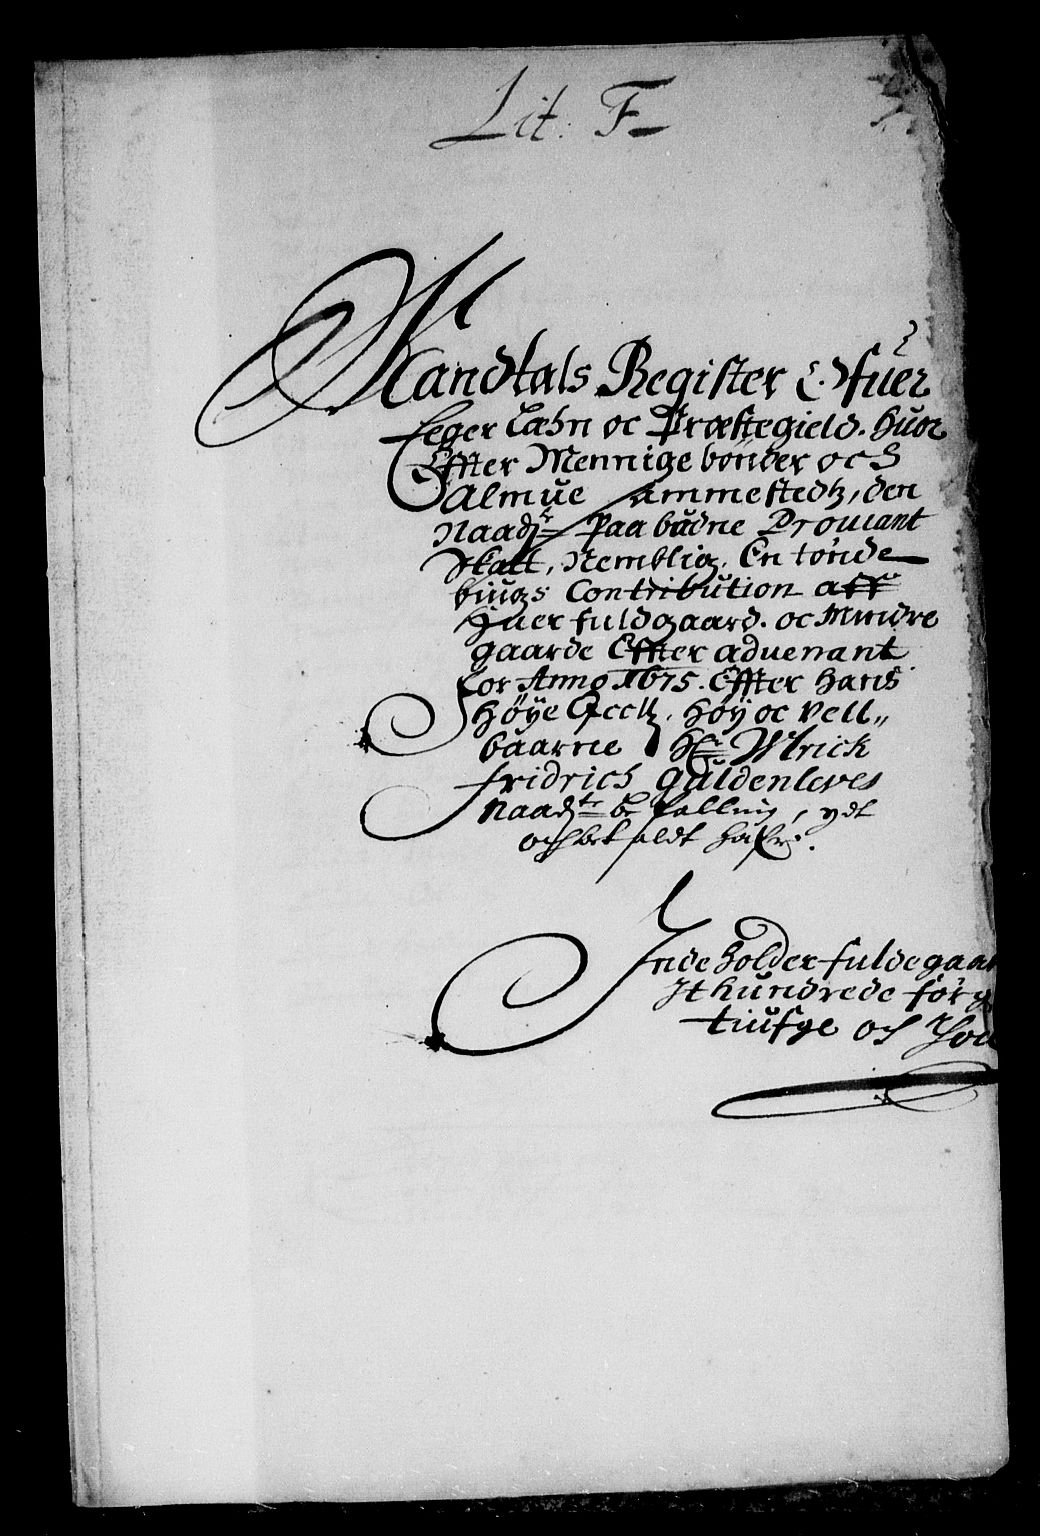 Lit: F
Mandtals Register Ofuer
Eeger Læhn oc Præstegield. huor
Effter Mennige bønder och
Almue sammestedtz, den
Naadste Paabudne Prouiant
Skatt, Nemblig. En tønde
biugs Contribution aff
Huer fuldgaard. oc Mindre
gaarde Effter aduenant
for Anno 1675. Effter hans
Høye Excell. høy oc Vell„
baarne Hr Wlrich
Fridrich Guldenleves
Naadste befalling, ydt
och betaldt hafr.
Indeholder fuldegaar
It hundrede førg
tiufge och